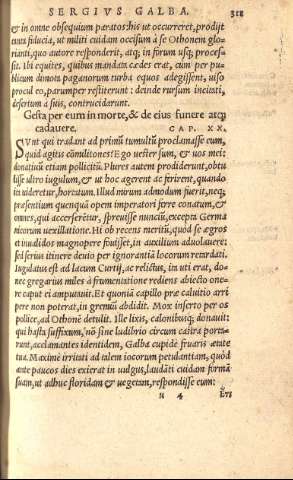 SERGIVS GALBA. 311
& in omne obsequium paratos:his ut occurreret, prodijt
tanta fiducia, ut militi cuidam occisum à se Othonem glo
rianti, quo autore responderit, atq; in forum usq; proces-
sit. Ibi equites, quibus mandata cædes erat, cum per pu-
blicum dimota paganorum turba equos adegissent, uiso
procul eo, parumper restiterunt: deinde rursum incitati,
desertum à suis, contruciderunt.
Gesta per eum in morte, & de eius funere atq;
cadauere. CAP. XX.
SVnt qui tradant ad primũ tumultũ proclamasse eum,
quid agitis cõmilitones? Ego uester sum, & uos mei:
donatiuũ etiam pollicitũ. Plures autem prodiderunt, obtu
lisse ultro iugulum, & ut hoc agerent ac ferirent, quando
ita uideretur, hortatum. Illud mirum admodum fuerit, neq;
præsentium quenquã opem imperatori ferre conatum, &
omnes, qui accerserẽtur, spreuisse nunciũ, excepta Germa
nicorum uexillatione. Hi ob recens meritũ, quod se ægros
et inualidos magnopere fouisset, in auxilium aduolauere:
sed serius itinere deuio per ignorantiã locorum retardati.
Iugulatus est ad lacum Curtij, ac relictus, in uti erat, do-
nec gregarius miles à frumentatione rediens abiecto one-
re caput ei amputauit. Et quoniã capillo præ caluitio arri
pere non poterat, in gremiũ abdidit. Mox inserto per os
pollice, ad Othonẽ detulit. Ille lixis, calonibusq; donauit:
qui hasta suffixum, nõ sine ludibrio circum castra porta-
rant, acclamantes identidem, Galba cupide fruaris ætate
tua. Maxime irritati ad talem iocorum petulantiam, quòd
ante paucos dies exierat in uulgus, laudãti cuidam formã
suam, ut adhuc floridam & uegetam, respondisse eum:
u 4 Ἔτι